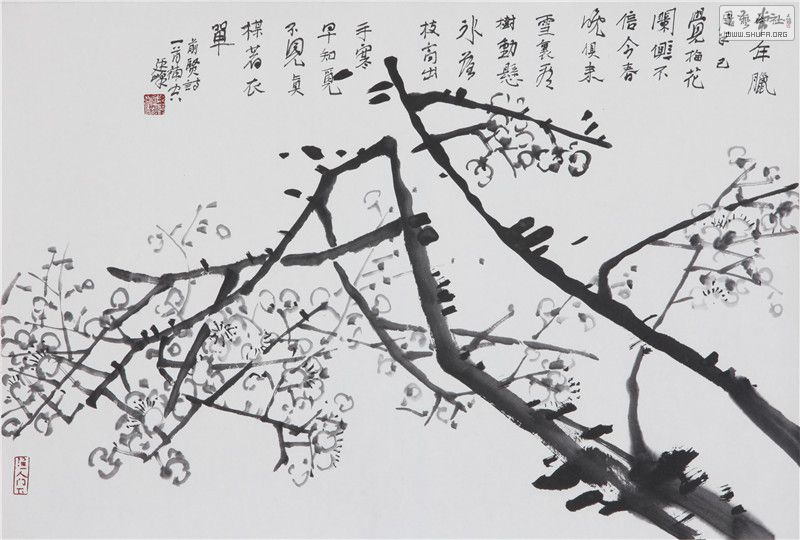 年臘
已
覺梅花
闌不
信今春
晚俱來
雪裏看
樹動懸
冰落
枝高出
手寒
早知覓
不見真
著衣
單
前賢詩
一首補空
WWW.SHUFA.ORG